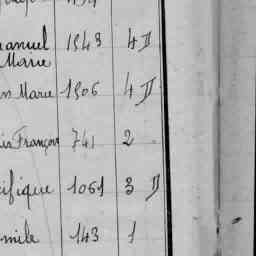 anuel 1343 4 D
Marie
n Marie 1306 4 D
is François 741 2
cifique 1061 3 D
mile 143 1